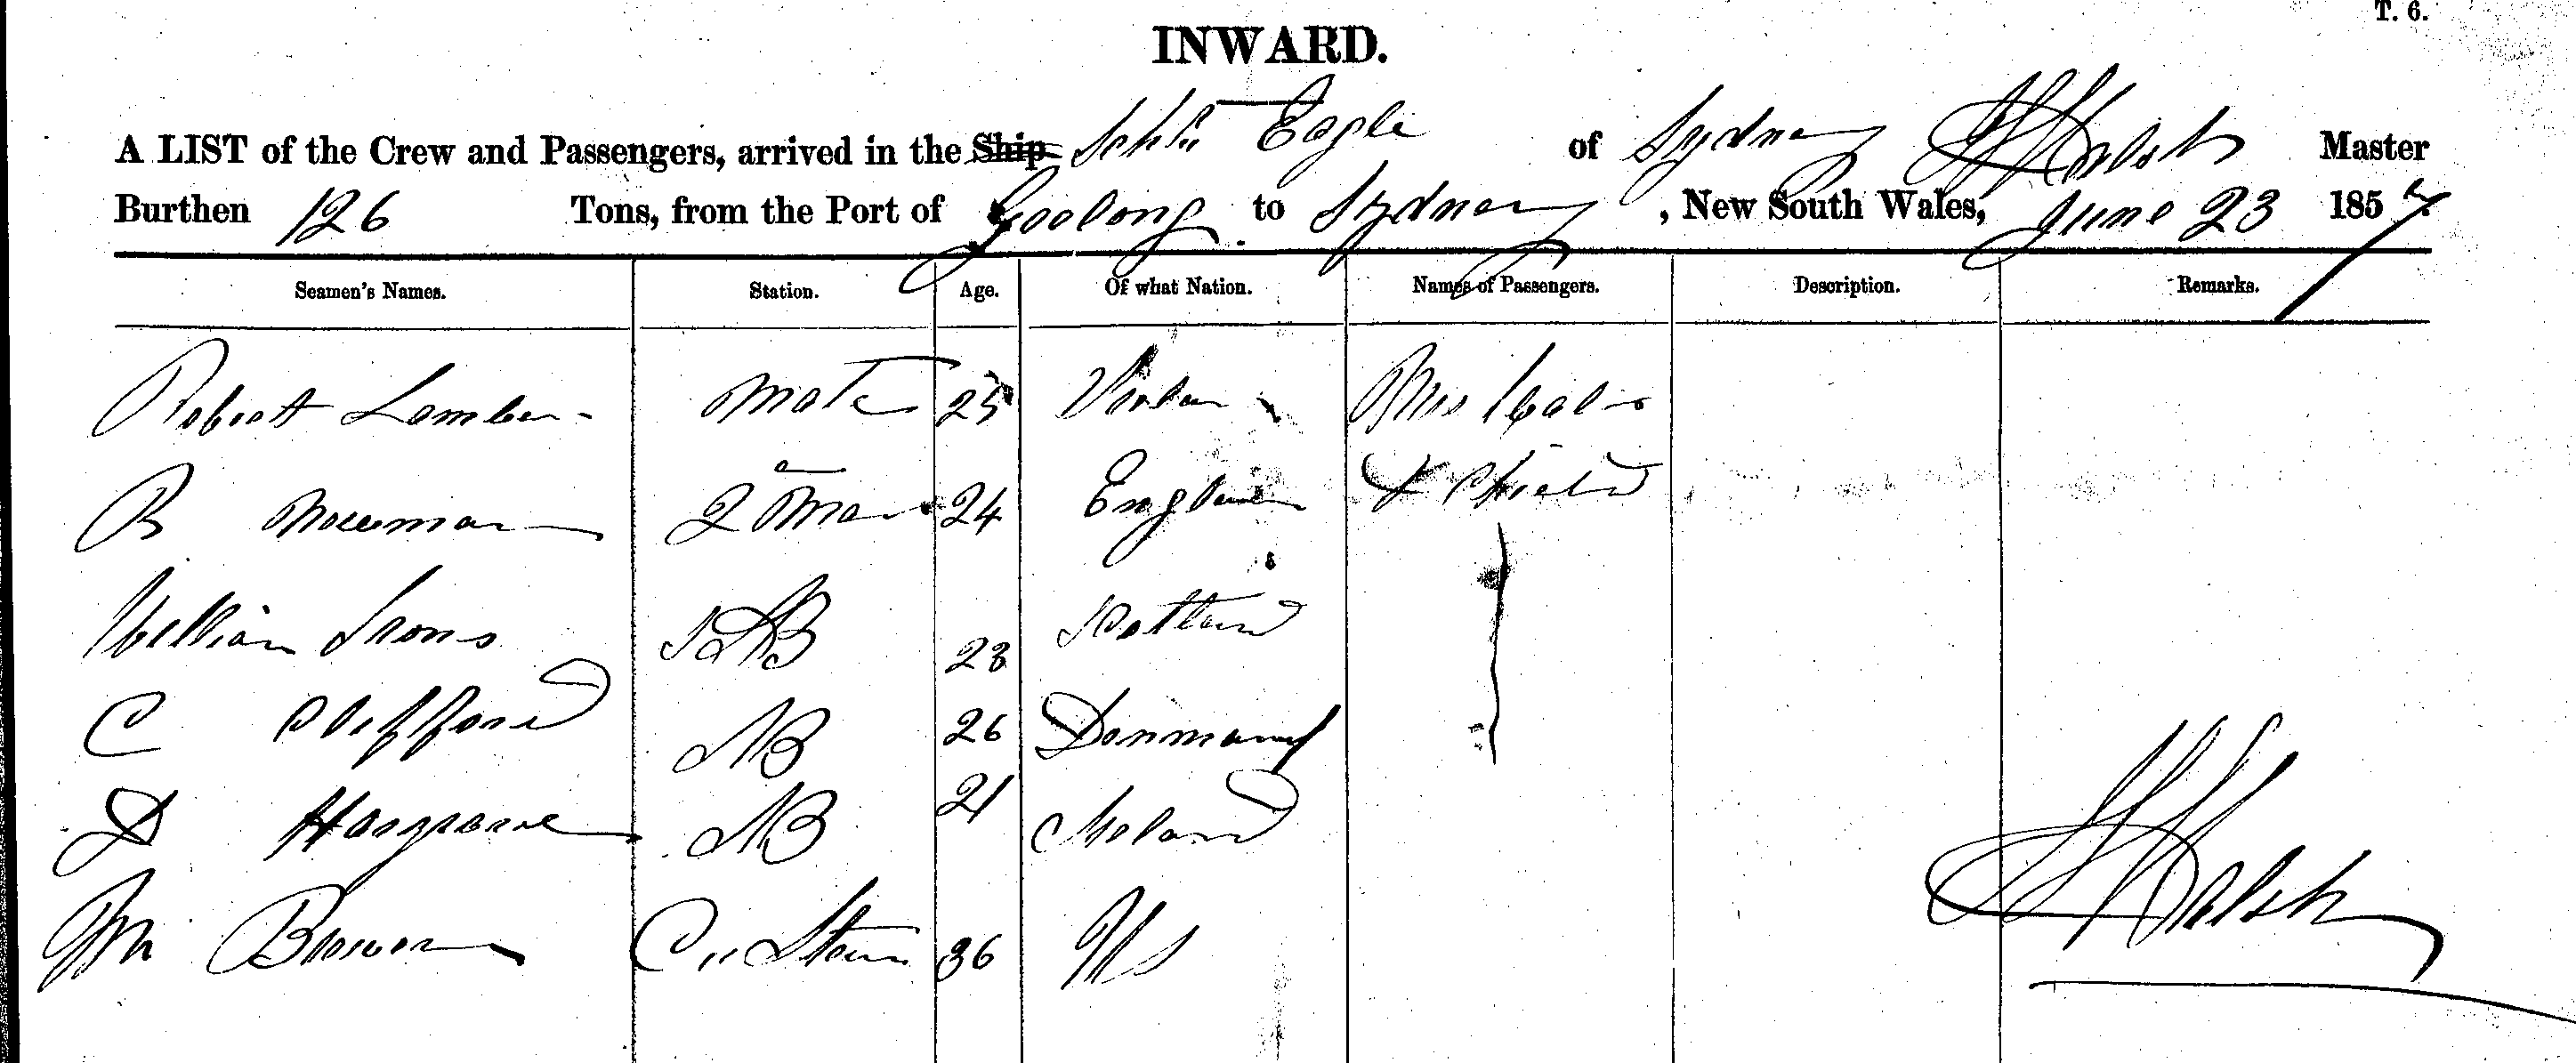 T. 6.
INWARD.
A LIST of the Crew and Passengers, arrived in the Ship Eagle of Sydney Walsh Master
Burthen 126 Tons, from the Port of Geelong to Sydney, New South Wales, June 23 1857
Seamen's Names. Station. Age. Of what Nation. Names of Passengers. Description. Remarks.
Robert Mate 25 Mrs
B Newman 2 24 England & Child
William Irons AB 23 Scotland
C Clifford AB 26
D Hargrave AB 21 Ireland
Brown 36 US
Walsh